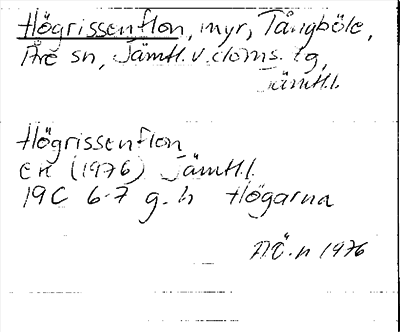 Högrissenflon, myr, Tångböle,
Åre sn, Jämtl. v. doms. tg,
Jämtl.
Högrissenflon
ek (1976) Jämtl.
19C 6-7 g-h Högarna
AÖ-n 1976